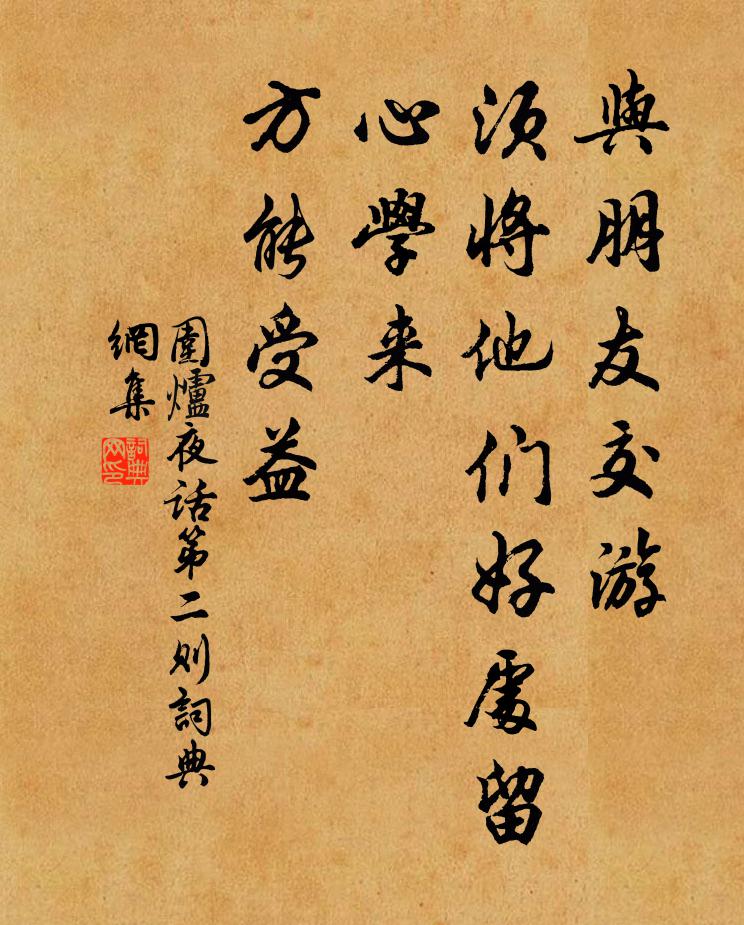 與朋友交游
须將他们好處留
心學来
方能受益
圍爐夜话第二则詞典
網集
詞典网印